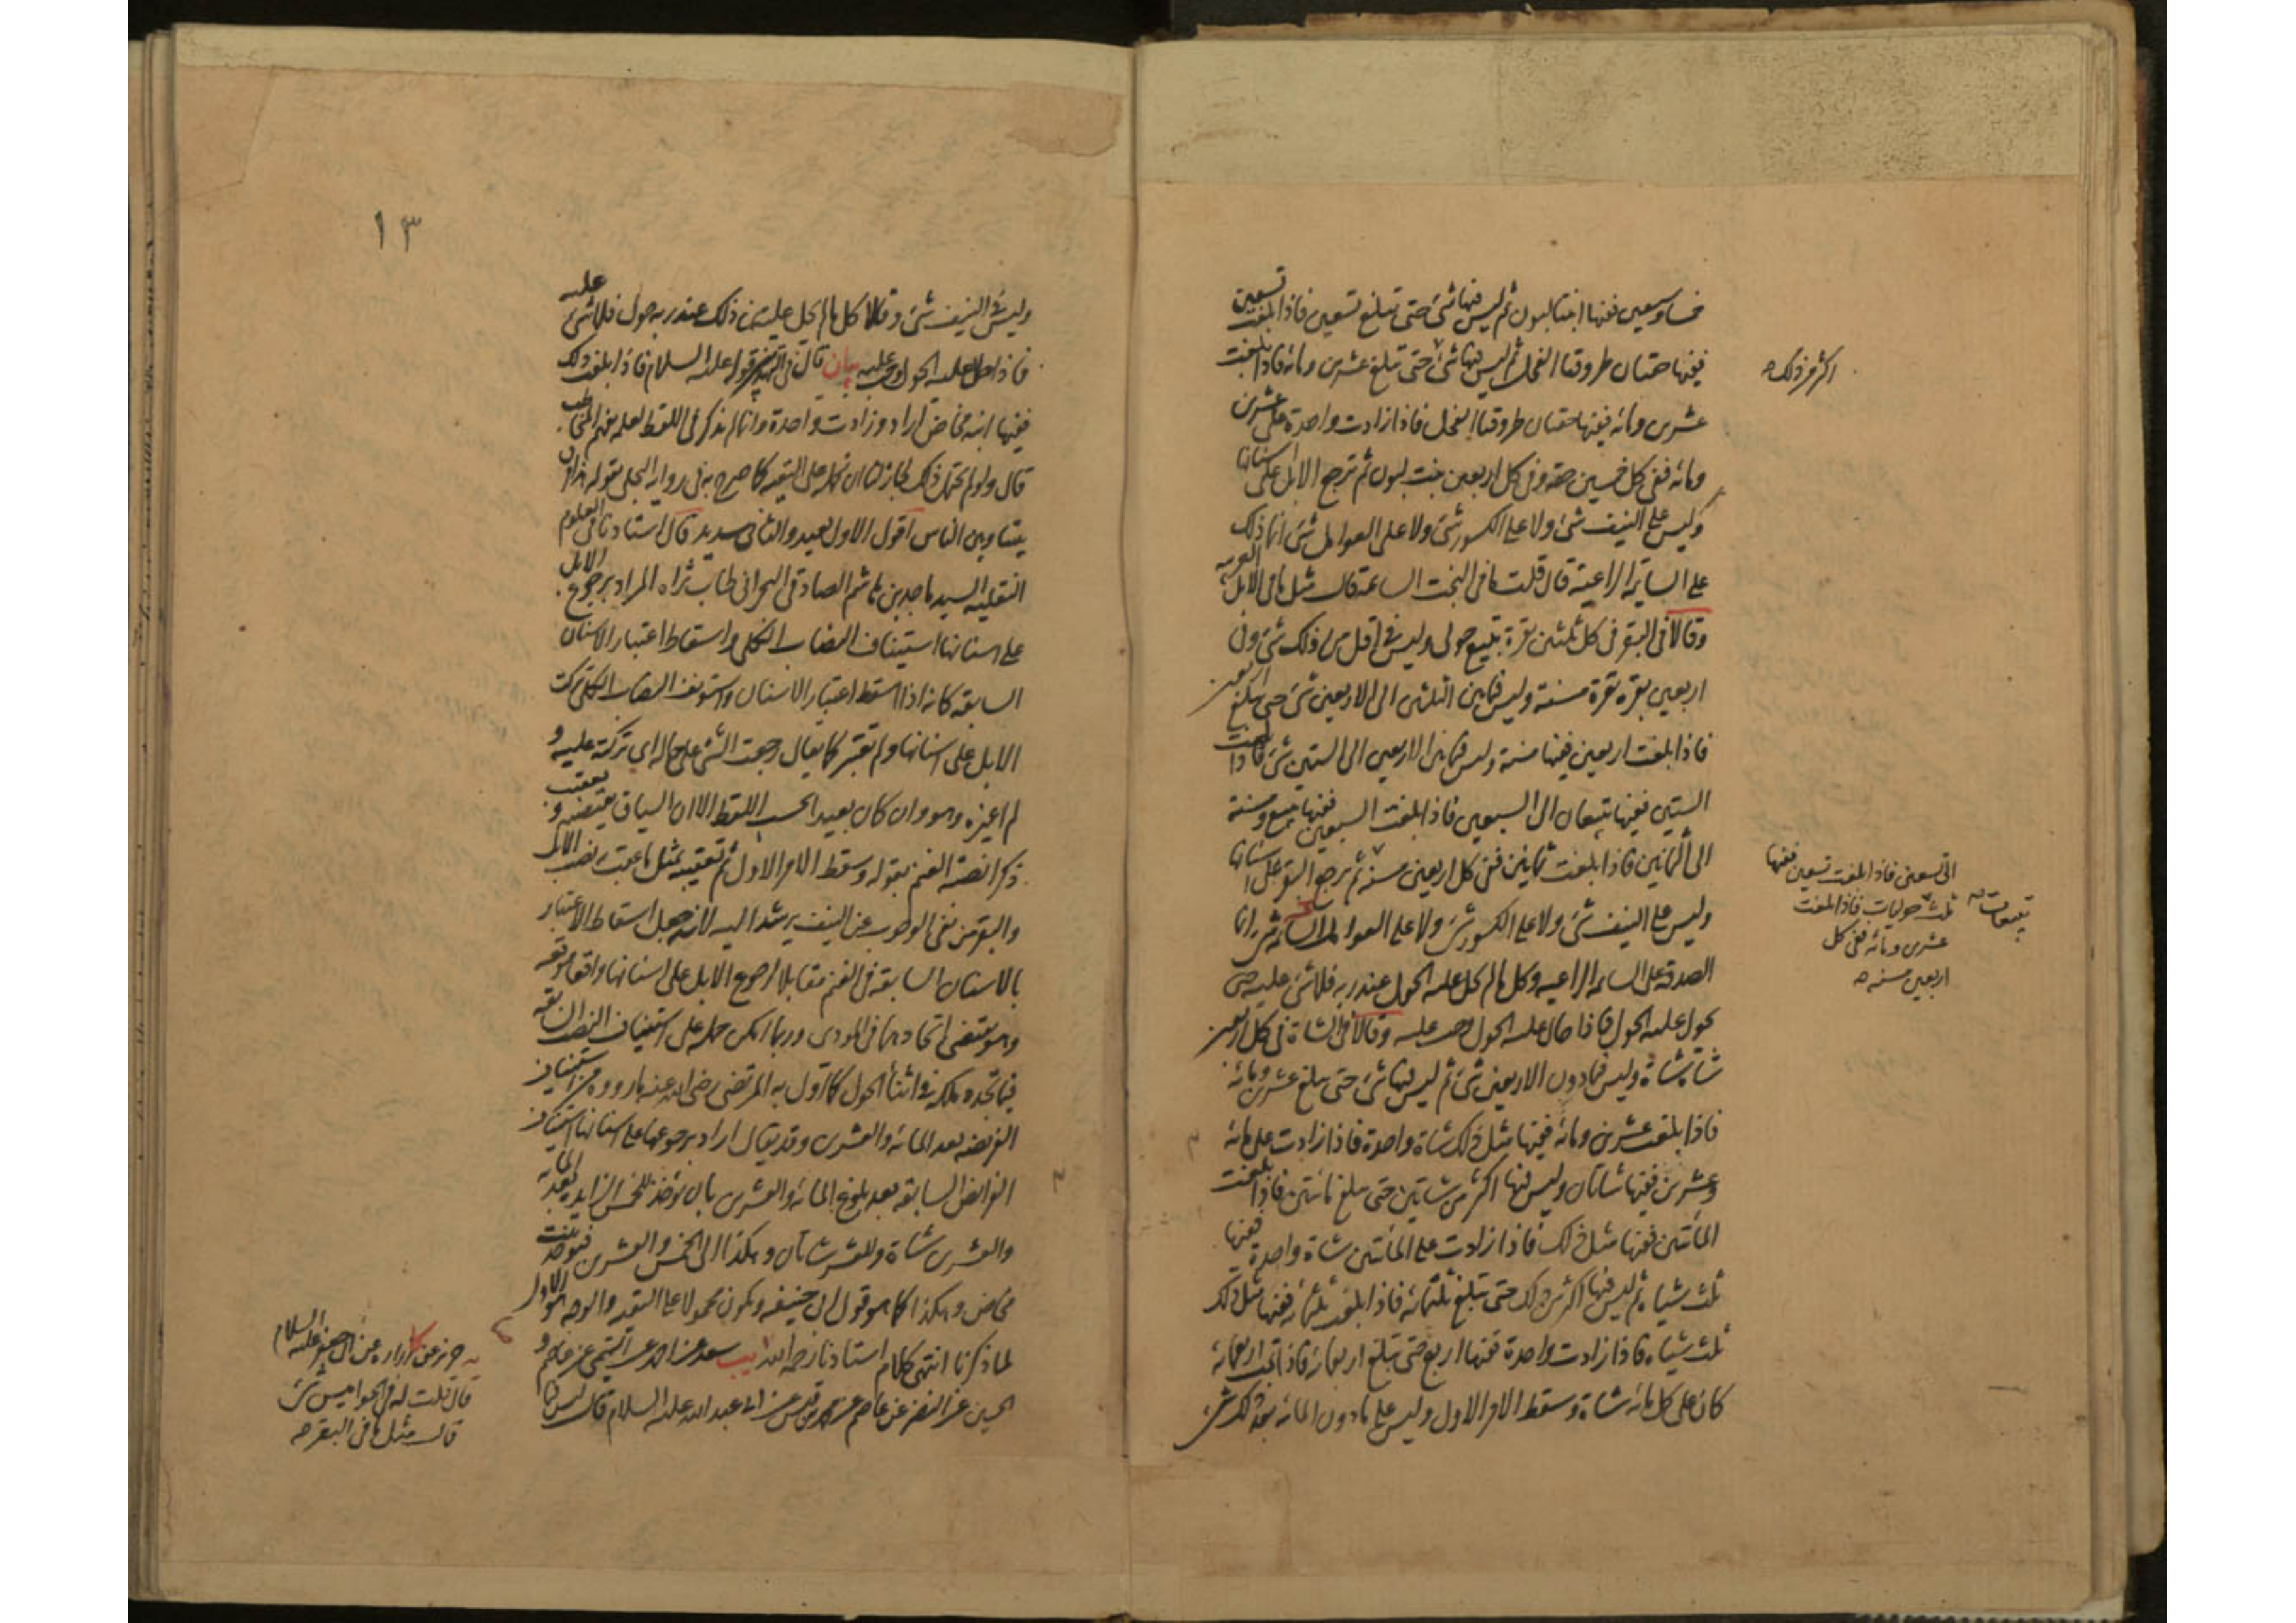 خمسا وسبعين ففيها ابنتا لبون ثم ليس فيها شئ حتى تبلغ تسعين فاذا بلغت تسعين
ففيها حقتان طروقتا الفحل ثم ليس فيها شئ حتى تبلغ عشرين ومائة فاذا بلغت
اكثر من ذلك
عشرين ومائه ففيها حقتان طروقتا الفحل فاذا زادت واحدة على عشرين
ومائه ففى كل خمسين حقه وفى كل اربعين بنت لبون ثم ترجع الابل على اسنانها
وليس على النيف شئ ولا على الكسور شئ ولا على العوامل شئ انما ذلك
على السائمة الراعية قال قلت ما فى البخت السائمة قال مثل ما فى الابل العربيه
وقالا فى البقر فى كل ثلثين بقرة تبيع حولى وليس فى اقل من ذلك شئ وفى
اربعين بقره بقرة مسنة وليس فيما بين الثلثين الى الاربعين شئ حتى تبلغ اربعين
فاذا بلغت اربعين ففيها مسنة وليس فيما بين الاربعين الى الستين شئ فاذا بلغت
الستين ففيها تبيعان الى السبعين فاذا بلغت السبعين ففيها تبيع ومسنة
الى الثمانين فاذا بلغت ثمانين ففى كل اربعين مسنه ثم ترجع البقر على اسنانها
الى تسعين فاذا بلغت تسعين ففيها
ثلث حوليات فاذا بلغت
تبيعات
عشرين ومائه ففى كل
اربعين مسنه
وليس على النيف شئ ولا على الكسور شئ ولا على العوامل شئ انما
الصدقة على السائمه الراعيه وكل ما لم يحل عليه الحول عند ربه فلا شئ عليه حتى
يحول عليه الحول فاذا حال عليه الحول وجب عليه وقالا فى الشاة فى كل اربعين
شاة شاة وليس فيما دون الاربعين شئ ثم ليس فيها شئ حتى تبلغ عشرين ومائه
فاذا بلغت عشرين ومائه ففيها مثل ذلك شاة واحدة فاذا زادت على مائه
وعشرين ففيها شاتان وليس فيها اكثر من شاتين حتى تبلغ مائتين فاذا بلغت
المائتين ففيها مثل ذلك فاذا زادت على المائتين شاة واحدة ففيها
ثلث شياه ثم ليس فيها اكثر من ذلك حتى تبلغ ثلثمائه فاذا بلغت ثلثمائه ففيها مثل ذلك
ثلث شياه فاذا زادت واحدة ففيها اربع حتى تبلغ اربعمائه فاذا تمت اربعمائه
كان على كل مائه شاة وسقط الامر الاول وليس على ما دون المائه بعد ذلك شئ
١٣
وليس فى النيف شئ وقالا كل ما لم يحل عليه من ذلك عند ربه حول فلا شئ عليه
فاذا حال عليه الحول وجب عليه بيان قال فى التهذيبين قوله عليه السلام فاذا بلغت ذلك
ففيها ابنه مخاض اراد وزادت واحدة وانما لم يذكر فى اللفظ لعلمه بفهم المخاطب
قال ولو لم يحتمل ذلك لجاز لنا ان نحمله على التقيه كما صرح به فى روايه البجلى بقوله هذا فرق
بيننا وبين الناس اقول الاول بعيد والثانى سديد قال استادنا فى العلوم
النقليه السيد ماجد بن هاشم الصادقى البحرانى طاب ثراه المراد برجوع الابل
على اسنانها استيناف النصاب الكلى واسقاط اعتبار الاسنان
السابقه كانه اذا اسقط اعتبار الاسنان واستونف النصاب الكلى تركت
الابل على اسنانها ولم تعتبر كما يقال رجعت الشئ على حاله اى تركته عليه و
لم اغيره وهو وان كان بعيدا بحسب اللفظ الا ان السياق يقتضيه و تعقيب
ذكر انصبة الغنم بقوله وسقط الامر الاول ثم تعقيبه بمثل ما عقب به نصب الابل
والبقر من نفى الوجوب عن النيف يرشد اليه لانه جعل اسقاط الاعتبار
بالاسنان السابقه فى الغنم مقابلا لرجوع الابل على اسنانها واقعا موقعه
وهو يقتضى اتحادهما فى المودى وربما امكن حمله على استيناف النصاب السابقه
فيما تجدد ملكه فى اثناء الحول كما اول به المرتضى رضى الله عنه ما رووه من استيناف
الفريضه بعد المائه والعشرين وقد يقال اراد برجوعها على اسنانها استيناف
الفرايض السابقه بعد بلوغ المائه والعشرين بان يؤخذ للخمس الزايد بعد المائه
والعشرين شاة وللعشر شاتان وهكذا الى الخمس والعشرين فيؤخذ بنت
مخاض وهكذا كما هو قول ابى حنيفه ويكون محمولا على التقيه والوجه هو الاول
لما ذكرنا انتهى كلام استادنا رحمه الله يب سعد عن احمد عن التميمى عن عاصم و
الحسين عن النضر عن عاصم عن محمد بن قيس عن ابى عبد الله عليه السلام قال ليس فيما
يه حريز عن زراره عن ابى جعفر عليه السلام
قال قلت له فى الجواميس شئ
قال مثل ما فى البقر